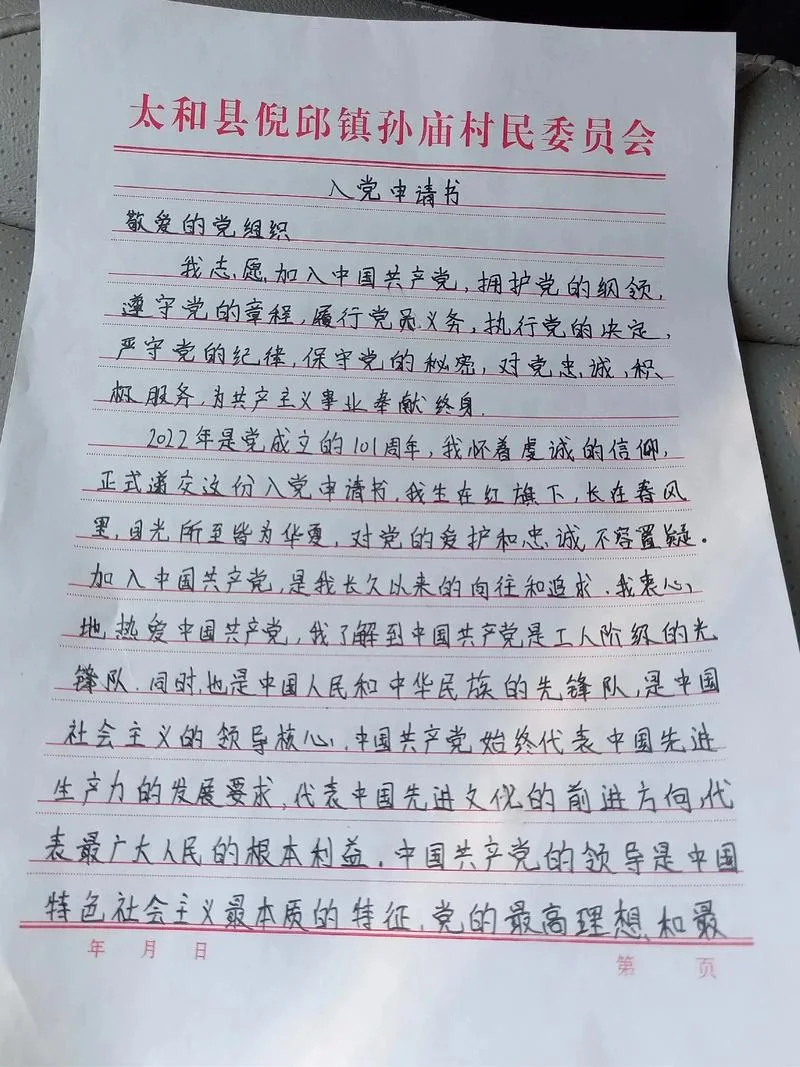 太和县倪邱镇孙庙村民委员会
入党申请书
敬爱的党组织
我志愿加入中国共产党,拥护党的纲领,
遵守党的章程,履行党员义务,执行党的决定,
严守党的纪律,保守党的秘密,对党忠诚,积
极服务,为共产主义事业奉献终身.
2022年是党成立的101周年,我怀着虔诚的信仰,
正式递交这份入党申请书,我生在红旗下,长在春风
里,目光所至皆为华夏,对党的爱护和忠诚不容置疑.
加入中国共产党,是我长久以来的向往和追求.我衷心
地热爱中国共产党,我了解到中国共产党是工人阶级的先
锋队.同时,也是中国人民和中华民族的先锋队,是中国
社会主义的领导核心,中国共产党始终代表中国先进
生产力的发展要求,代表中国先进文化的前进方向,代
表最广大人民的根本利益.中国共产党的领导是中国
特色社会主义最本质的特征,党的最高理想和最
年 月 日
第 页